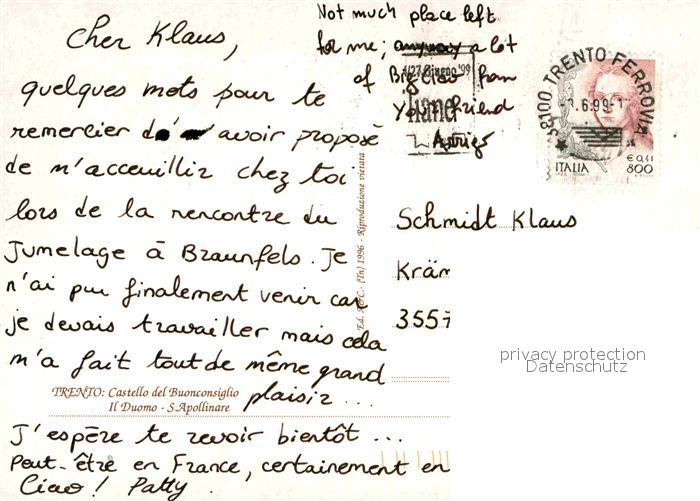 Cher Klaus,
quelques mots pour te
remercier d' avoir proposé
de m'acceuillir chez toi
lors de la rencontre du
Jumelage à Braunfels. Je
n'ai pu finalement venir car
je devais travailler mais cela
m'a fait tout de même grand
plaisir...
J'espère te revoir bientôt ...
Peut-être en France, certainement en
Ciao! Patty.
Not much place left
for me; anyway a lot
of from
your friend
TRENTO: Castello del Buonconsiglio
Il Duomo - S.Apollinare
Ed. (Tn) 1996 - Riproduzione vietata
38100 TRENTO FERROVIA
.6.99-1
ITALIA
€ 0,41
800
Schmidt Klaus
Kräm
3557
privacy protection
Datenschutz